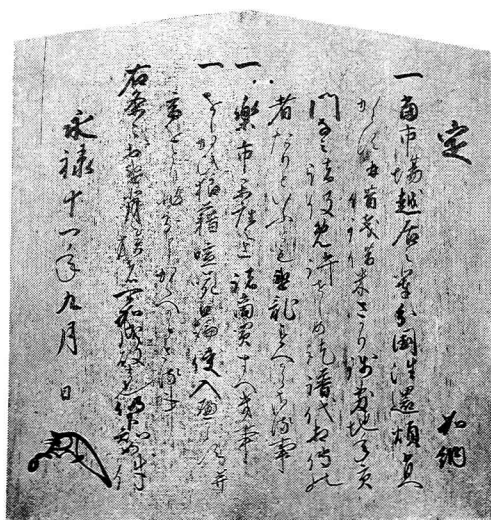 定 加納
一 当市場越居之輩分国往還煩有
へからす并借銭借米さかり銭敷地年貢
門なみ諸役免許せしめ訖譜代相伝の
者たりといふとも違乱すへからさる事
一 楽市楽座之上諸商買すへき事
一 をしかひ狼藉喧嘩口論使入へからす并
宿をとり非分申かくへからさる事
右条々於違背之族者可加成敗者也仍下知如件
永禄十一年九月 日